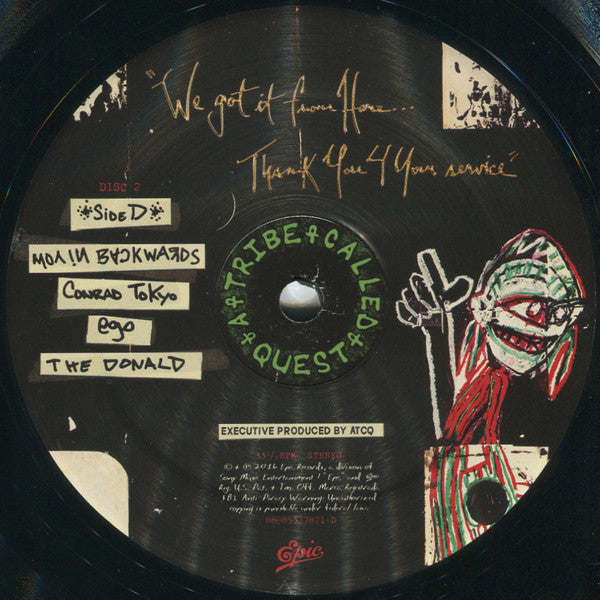 "We got it from Here...
Thank You 4 Your service"
DISC 2
*SIDE D*
MOVIN BACKWARDS
CONRAD TOKYO
ego
THE DONALD
A TRIBE CALLED QUEST
EXECUTIVE PRODUCED BY ATCQ
33⅓ RPM STEREO
© + ℗ 2016 Epic Records, a division of
Sony Music Entertainment / "Epic" and
Reg. U.S. Pat. + Tm. Off. Marca Registrada.
FBI Anti-Piracy Warning: Unauthorized
copying is punishable under federal law.
-D
Epic